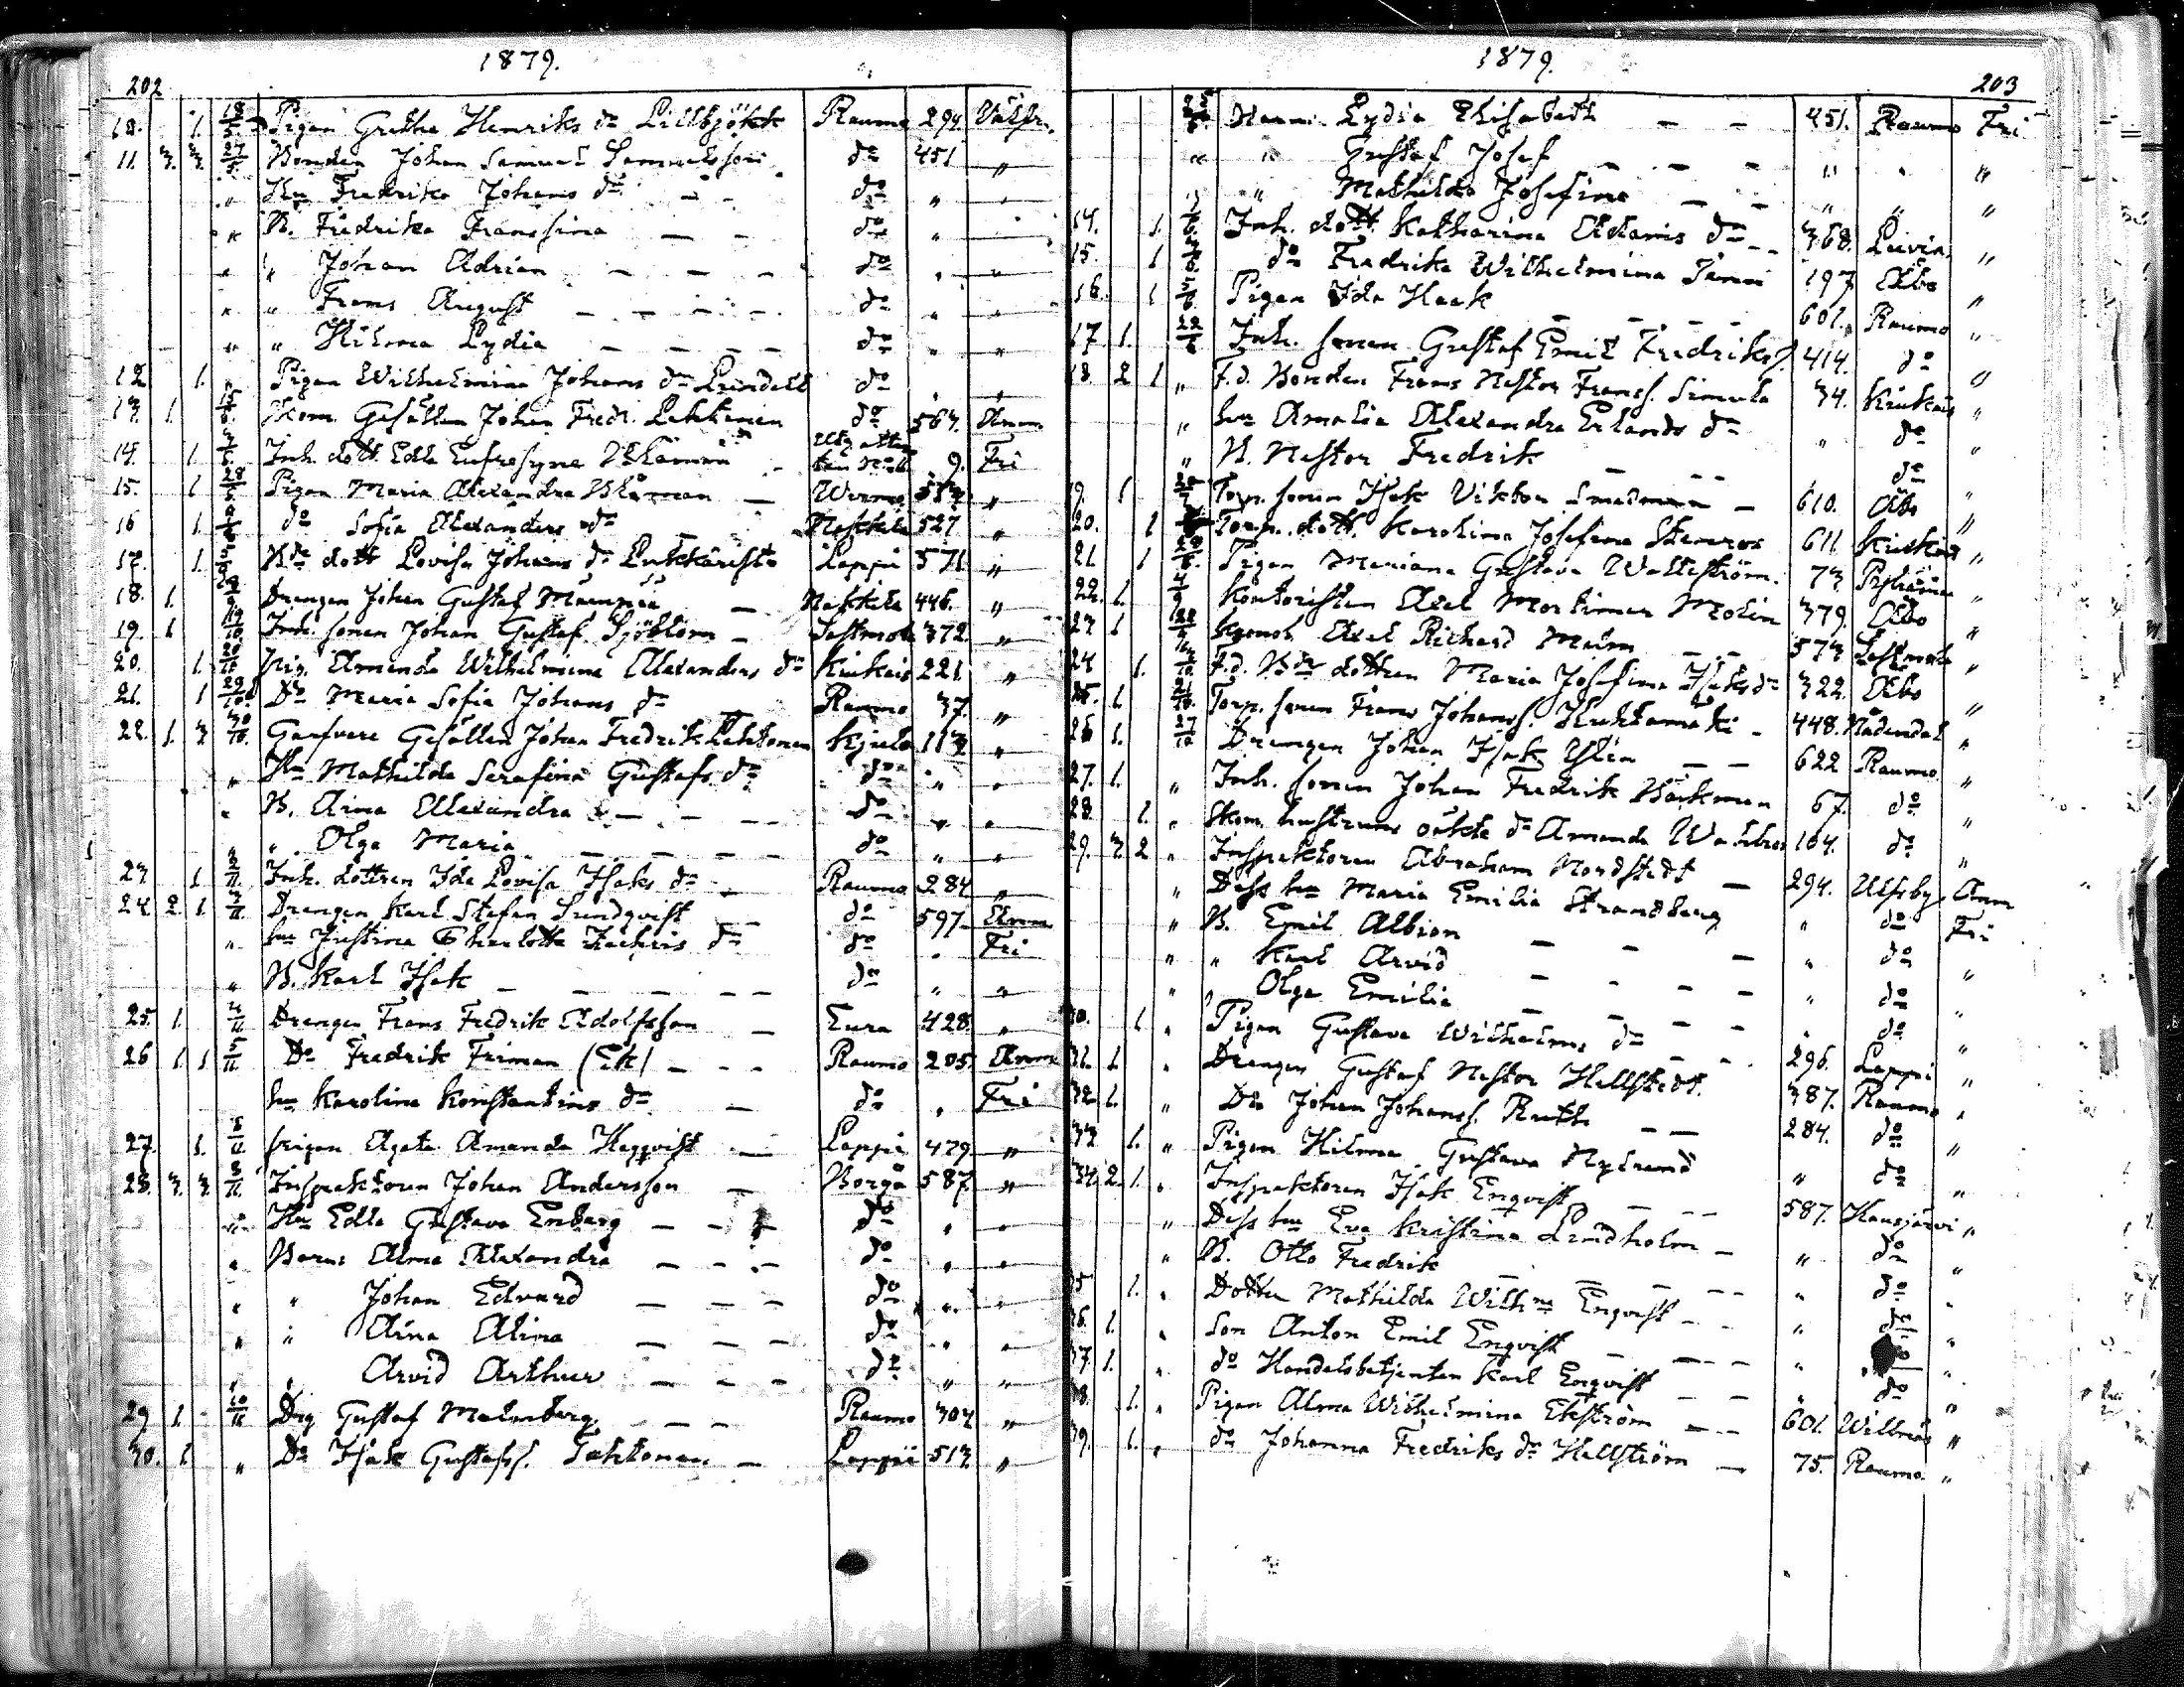 1879.
202
10. 1. 18/5 Pigan Gretha Henriks dr Lillbjökk Raumo 294
11. 3. 3. 27/5 Bonden Johan Samuel Samuelsson do 451 "
" Hu Fredrika Johans dr do " "
" B. Fredrika Franssina do "
" " Johan Adrian do " "
" " Frans August do " "
" " Hilma Lydia do " "
12. 1. " Pigan Wilhelmina Johans dr Lindell do " "
13. 1. Skom. Gesällen Johan Fredr. Lehtinen do 563. Anm
14. 1. Inh. dott. Edla Eufrosyne 9. Fri
15. 1 Pigan Maria Alexandra "
16 1. do Sofia Alexanders dr 527 "
17. 1. Bde dott Lovisa Johans dr Lappi 571 "
18. 1. Drengen Johan Gustaf 446. "
19. 1 Inh. sonen Johan Gustaf Sjöblom 372. "
20. 1. Pig. Amanda Wilhelmina Alexanders dr Kiukais 221. "
21. 1 29/10 Do Maria Sofia Johans dr Raumo 37. "
22. 1. 3 30/10 Garfvare Gesällen Johan Fredrik Lehtonen Kjulo 113 "
" Hu Mathilda Serafina Gustafs dr do " "
" B. Aina Alexandra do " "
" " Olga Maria do " "
23. 1 Inh. dottren Ida Lovisa Isaks dr Raumo 284 "
24. 2. 1. Drengen Karl Stefan Sundqvist do 597 Anm
" hu Justina Charlotta Zachris dr do " Fri
" B. Karl Isak do " "
25. 1. Drengen Frans Fredrik Adolfsson Eura 428. "
26 1. 1 5/11 Do Fredrik Friman (Ek) Raumo 205 Anm
hu Karolina Konstantins dr do " Fri
27. 1. Pigan Agata Amanda Heqqvist Lappi 429. "
28. 3. 3. Inspektoren Johan Andersson Borgå 587. "
" Hu Edla Gustava Enberg do " "
" Barn: Alma Alexandra do " "
" " Johan Edvard do " "
" " Aina Alina do " "
" " Arvid Arthur do " "
29 1. 10/11 Drg Gustaf Malmberg Raumo 303 "
30. 1. " Do Isak Gustafss. Lappi 513 "
1879.
203
Barn: Lydia Elisabeth 451. Raumo Fri
" " Gustaf Josef " " "
" " Mathilda Josefina " " "
14. 1. Inh. dott. Katharina Adams dr 368. Luvia "
15. 1 do Fredrika Wilhelmina 197 Åbo "
16. 1 Pigan Ida Haak 601. Raumo "
17 1. 22/6 Inh. sonen Gustaf Emil Fredrikss. 414. do "
18. 2 1 " F.d. Bonden Frans Nestor Franss. Simula 34. Kiukais "
" hu Amalia Alexandra Erlands dr " do "
" B. Nestor Fredrik do "
19. 1 Torp. sonen Isak Viktor 610. Åbo "
20. 1 Torp. dott. Karolina Josefina 611. "
21 1 Pigan Mariana Gustava Wallström. 73 "
22. 1. 4/9 Kontoristen Axel Mortimer Molin 379. Åbo "
23 1 Axel Richard Malm 573 "
24 1. F.d. Bde dottren Maria Josefina Isaks dr 322. Åbo "
25. 1. Torp. sonen Frans Johanss. 448. Nådendal "
26 1. 27/10 Drengen Johan Isak 622 Raumo "
27. 1. " Inh. sonen Johan Fredrik Bäckman 67. do "
28. 1. " Skom. hustruns oäkta dr Amanda 164. do "
29. 3. 2 " Inspektoren Abraham Nordstedt 294. Ulfsby Anm
" Dess hu Maria Emilia Strandberg " do Fri
" B. Emil Albion " do "
" " Karl Arvid " do "
" " Olga Emilia " do "
30. 1 " Pigan Gustava Wilhelms dr 296. Lappi "
31. 1 " Drengen Gustaf Nestor Hellstedt. 387. Raumo "
32. 1. " Do Johan Johanss. Ruth 284. do "
33 1. " Pigan Hilma Gustava Nylund " do "
34. 2. 1. " Inspektoren Isak Enqvist 587. Hausjärvi "
" Dess hu Eva Kristina Lindholm " do "
" B. Otto Fredrik " do "
35 1. " Dotter Mathilda Wilhna Enqvist " do "
36. 1. " Son Anton Emil Enqvist "
37. 1. " do Handelsbetjenten Karl Enqvist " do "
38. 1. " Pigan Alma Wilhelmina Ekström 601. "
39. 1. " do Johanna Fredriks dr Hellström 75. Raumo "